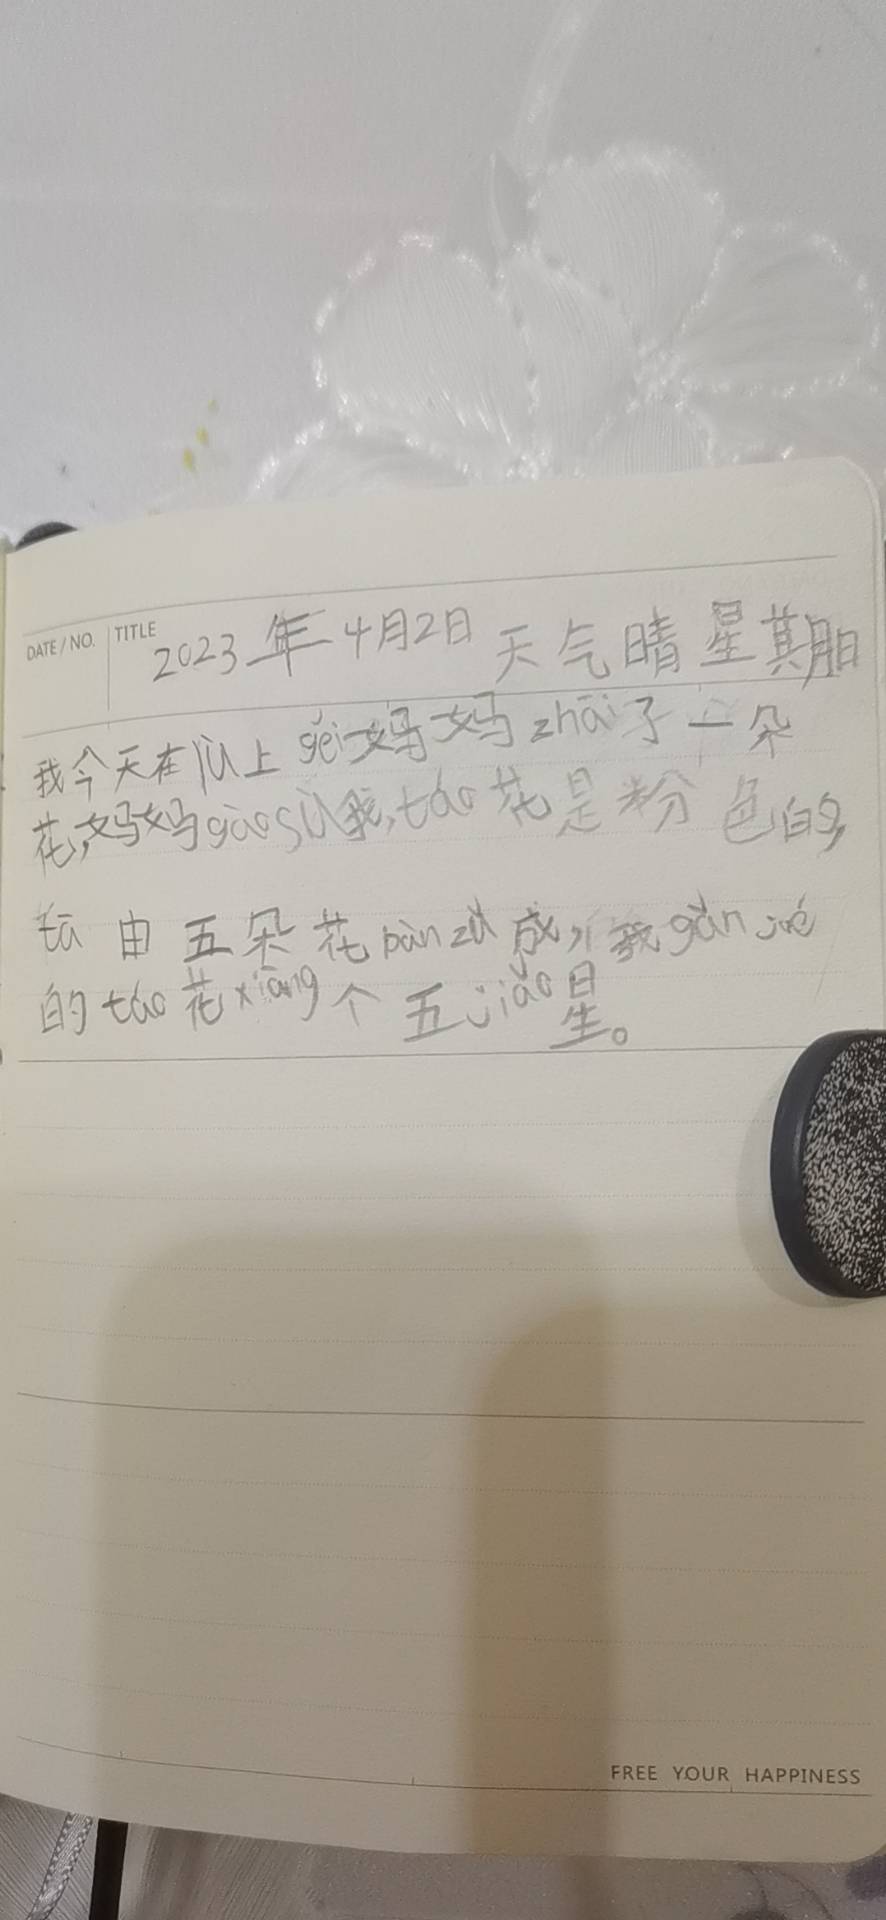 DATE / NO. TITLE
2023年4月2日 天气晴 星期日
我今天在lù上gěi妈妈zhāi了一朵
花,妈妈gàosù我,táo花是粉色的,
tā由五朵花bànzǔ成,我gǎnjué
的táo花xiàng个五jiǎo星。
FREE YOUR HAPPINESS